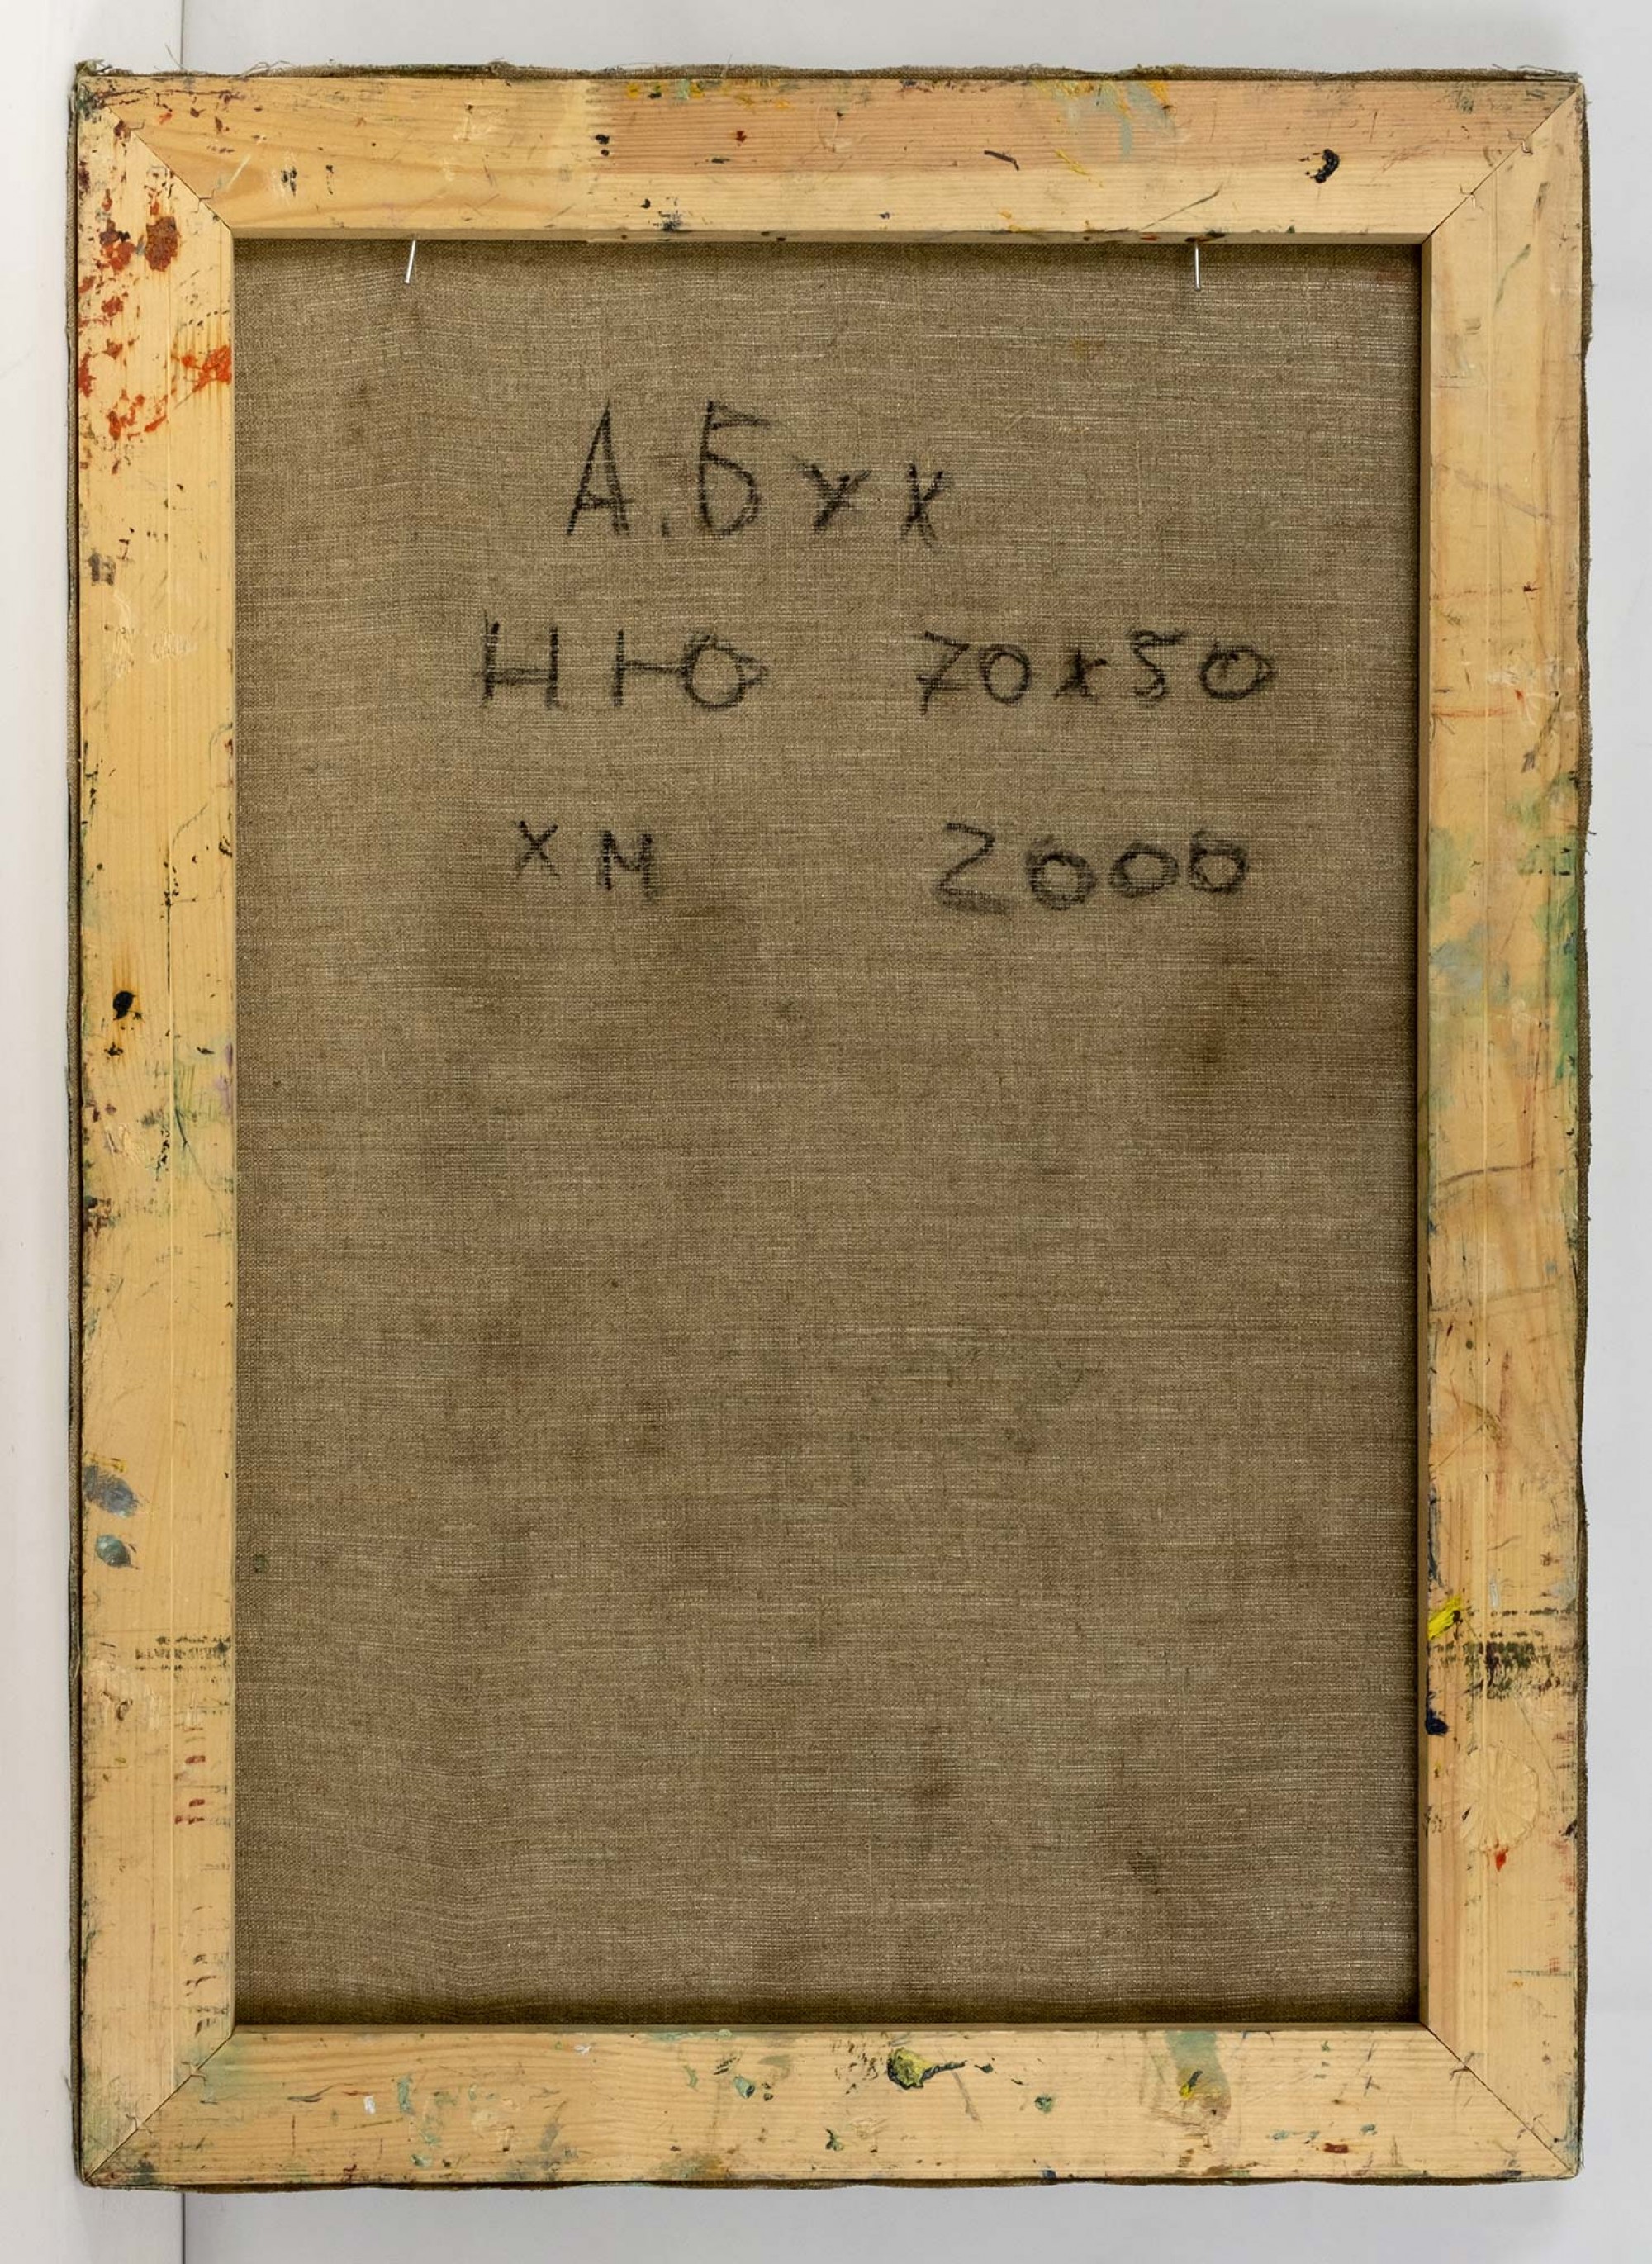 А. Бух
НЮ 70x50
хм 2000